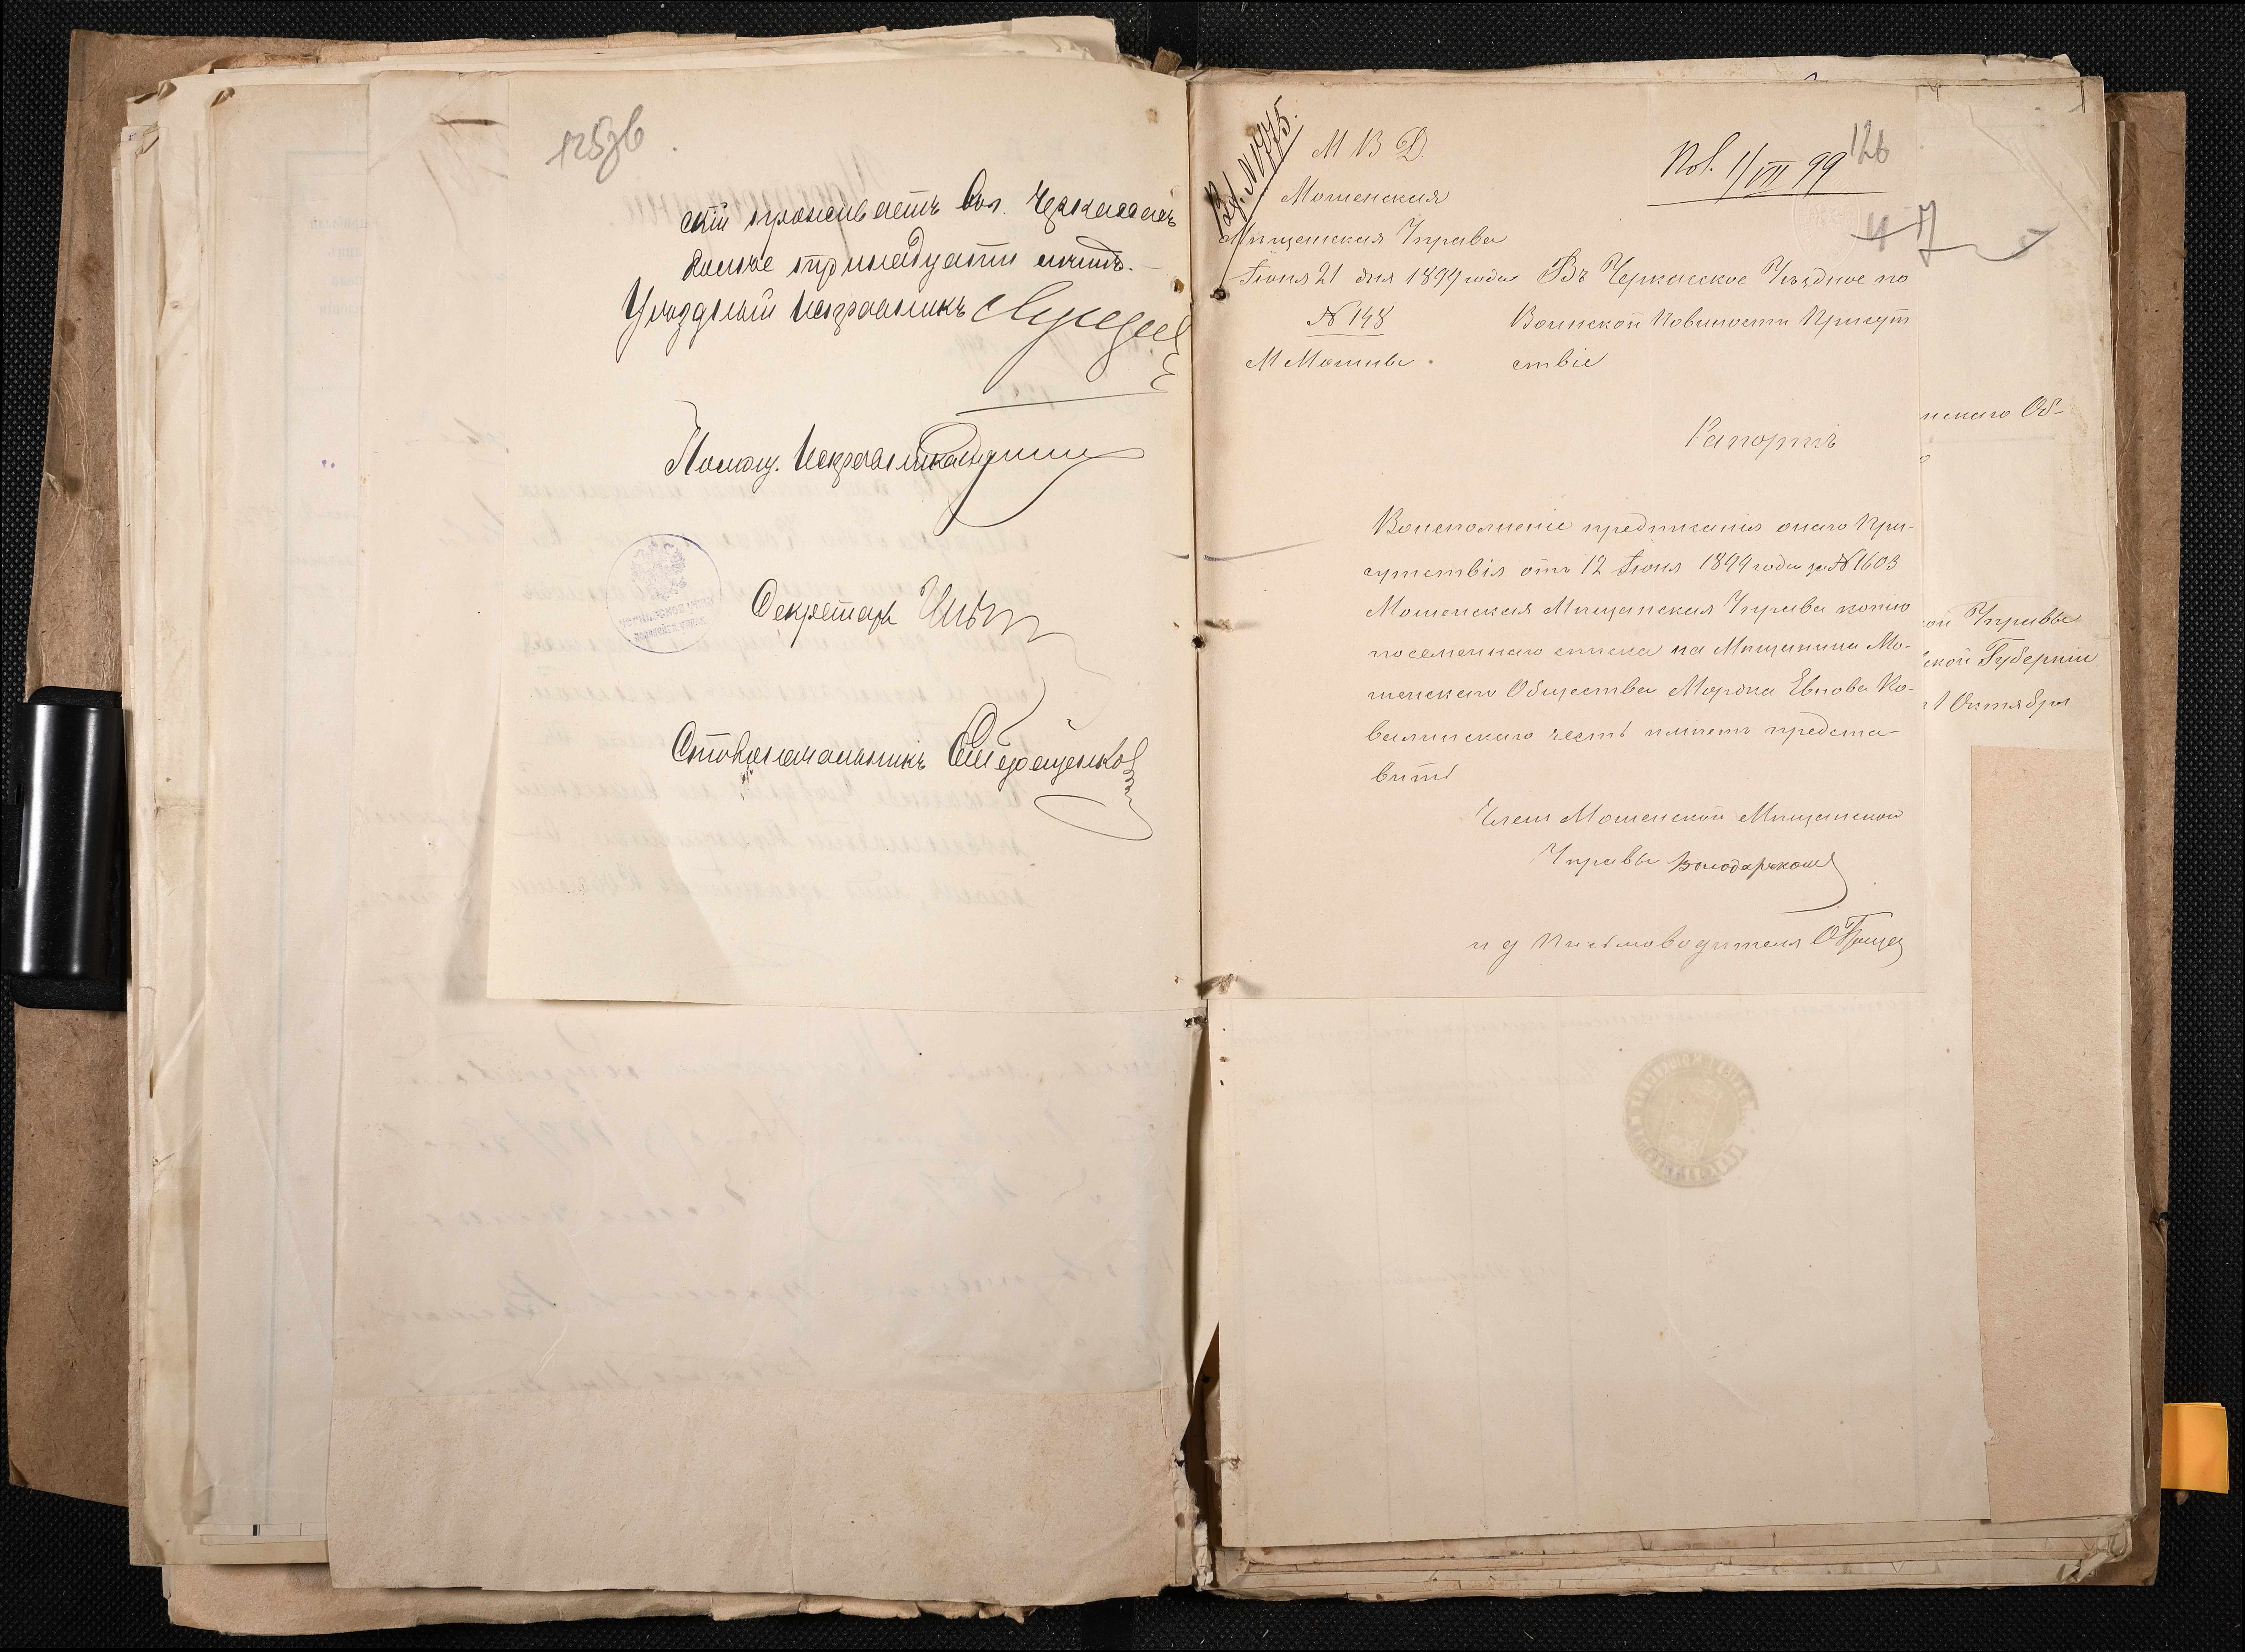 125об
скій проживаетъ въ г. Черкассахъ
более тринадцати лѣтъ.
Уѣздный Исправникъ
Помощ. Исправника
Секретарь
Столоначальникъ
Вх. № 1775.
М В Д
Мошенская
Мѣщанская Управа
Іюня 21 дня 1899 года
№ 148
М Мошны
Пол. 1/VII 99
126
Въ Черкасское Уѣздное по
Воинской Повиности Присут
ствіе
Рапортъ
Воисполненіе предписанія онаго При-
сутствія отъ 12 Іюня 1899 года за № 1603
Мошенская Мѣщанская Управа копію
посемейнаго списка на Мѣщанина Мо-
шенскаго Общества Мордка Евнова Ко-
валинскаго честь имѣетъ предста-
вить
Членъ Мошенской Мѣщанской
Управы Володарской
и д Письмоводителя
нскаго Об-
ой Управы
ской Губерніи
1 Октября